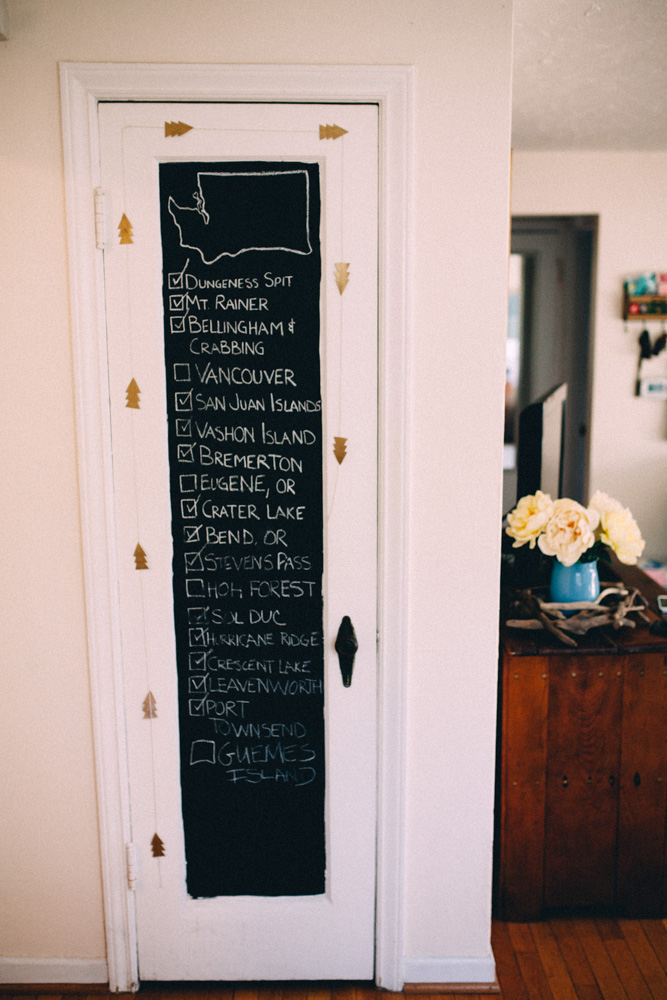 Dungeness Spit
Mt Rainer
Bellingham &
Crabbing
Vancouver
San Juan Islands
Vashon Island
Bremerton
Eugene, OR
Crater Lake
Bend, OR
Stevens Pass
Hoh Forest
Sol Duc
Hurricane Ridge
Crescent Lake
Leavenworth
Port
Townsend
Guemes
Island